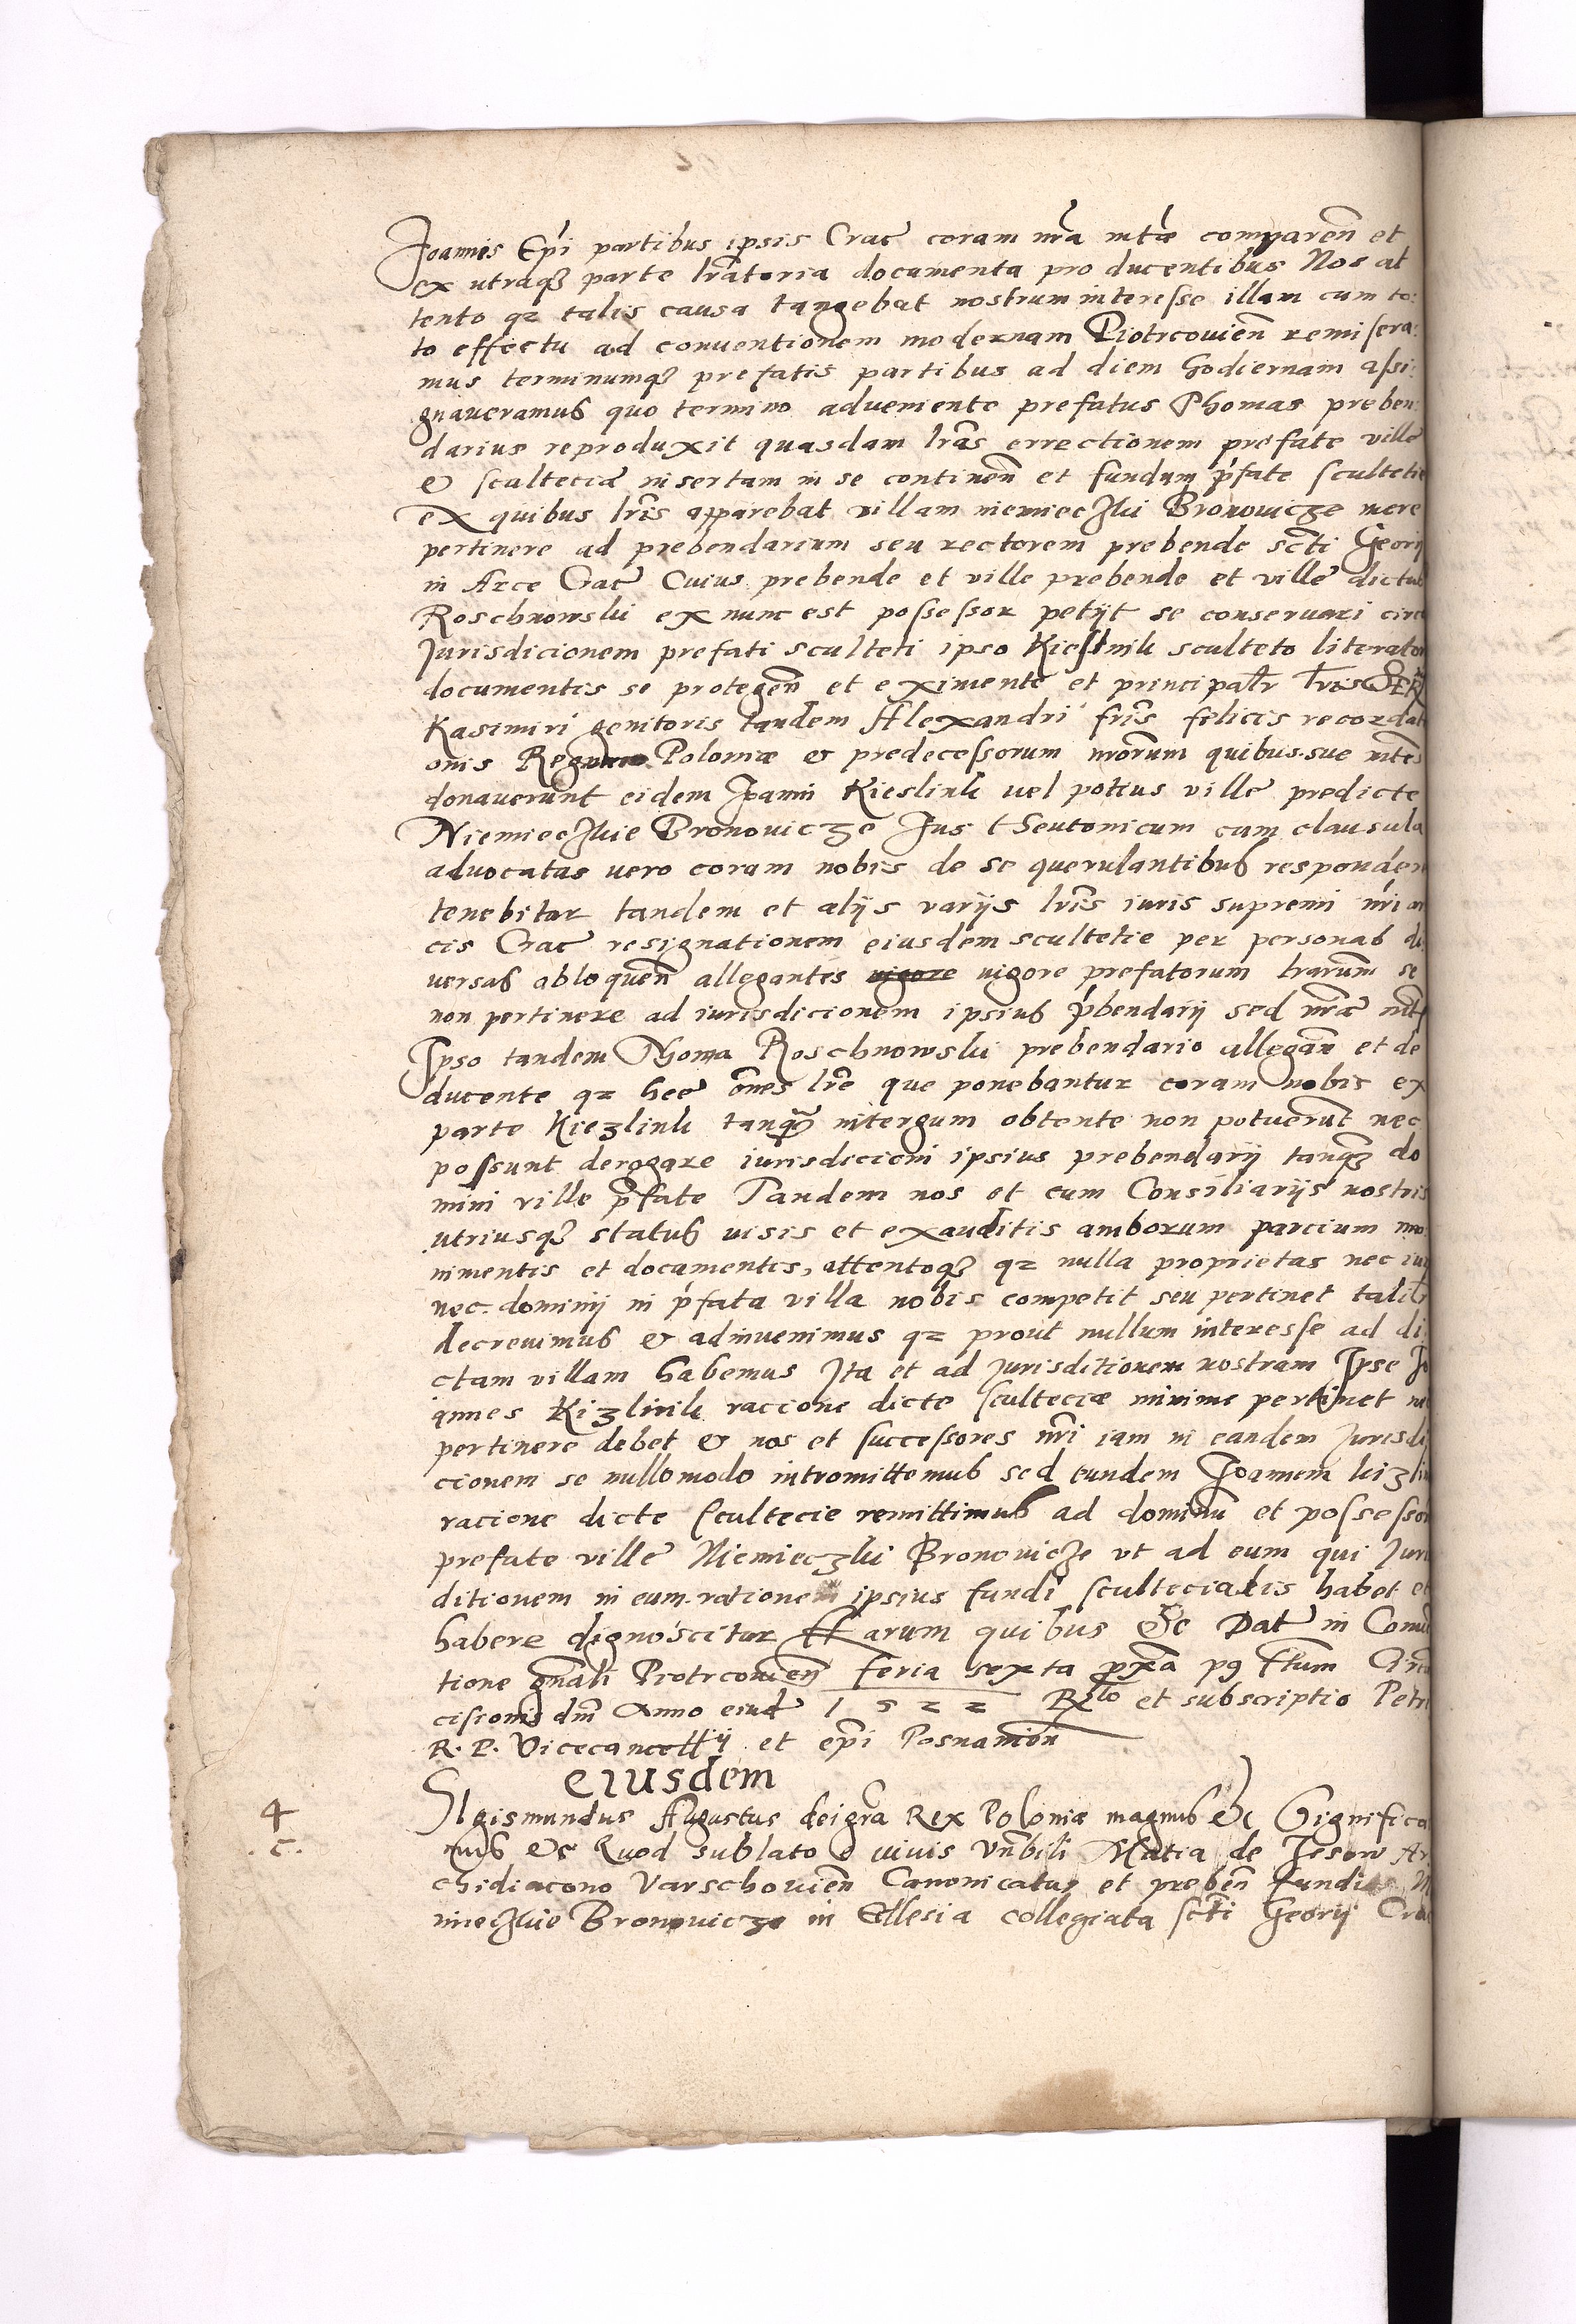 Joannis Epi partibus ipsis Crac coram nra mtae comparen et
ex utraq3 parte lratoria documenta pro ducentibus Nos at
tento q2 talis causa tangebat nostrum interesse illam cum to:
to effectu ad conventionem modernam Piotrcovien remisera:
mus terminumq3 prefatis partibus ad diem hodiernam assi:
gnaveramus quo termino adveniente prefatus Thomas preben:
darius reproduxit quasdam lras errectionem prefate ville
& scultecia insertam in se continen et fundum pfate sculteti
ex quibus lris apparebat villam niemieczki Bronovicze mere
pertinere ad prebendarium seu rectorem prebende scti Georij
in Arce Crac Cuius prebende et ville prebende et ville dictus
Roschnowski ex nunc est possessor petijt se conservari circa
Jurisdicionem prefati sculteti ipso Kieslink sculteto literator
documentis se protegen et eximente et principalr lris
Kasimiri genitoris tandem Alexandri fris felicis recordati
onis Regum Poloniae & predecessorum nrorum quibus sue mtes
donaverunt eidem Joanni Kieslink uel potius ville predicte
Niemieczkie Bronovicze Jus tSeutonicum cum clausula
advocatas uero coram nobis de se querulantibus responder
tenebitur tandem et alijs varijs lris iuris supremi nri ar
cis Crac resignationem eiusdem scultetie per personas di
versas abloquen allegantes vigore uigore prefatorum lrarum se
non pertinere ad iurisdicionem ipsius pbendarij sed nrae mti
Ipso tandem Thoma Roschnowski prebendario allegan et de
ducente q2 hee omes lre que ponebantur coram nobis ex
parte Kiezlink tanqua intergum obtente non potuerunt nec
possunt derogare iurisdicioni ipsius prebendarij tanq3 do
mini ville pfate Tandem nos et cum Consiliarijs nostris
utriusq3 status uisis et exauditis amborum parcium mo
nimentis et documentis, attentoq3 q2 nulla proprietas nec iur
nec dominij in pfata villa nobis competit seu pertinet talibr
decrevimus & adinvenimus q2 prout nullum interesse ad di
ctam villam habemus Ita et ad Jurisditionem nostram Ipse Jo
annes Kizlink racione dicte sculteciae minime pertinet ne
pertinere debet & nos et successores nri iam in eandem Jurisdi
cionem se nullomodo intromittemus sed eundem Joannem kizlin
racione dicte scultecie remittimus ad dominu et possessor
prefate ville Niemieczki Bronovicze vt ad eum qui Juris
ditionem in eum ratione ipsius fundi scultecialis habet et
habere dignoscitur Harum quibus &c Dat in Conue
tione gnali Piotrcovien feria sexta pxa p9 ftum Circu
cisionis dni Anno eiud 1522 Rlo et subscriptio Petri
R. P. Vicecancellij et epi Posnanien
eiusdem
4
c.
SIgismundus Augustus dei gra Rex Poloniae magnus &c Significa
mus &c Quod sublato e vivis Vnbili Matia de Jesow Ar
chidiacono Varschovien Canonicatus et preben fundi
mieczkie Bronovicze in Ecclesia collegiata scti Georij Crac